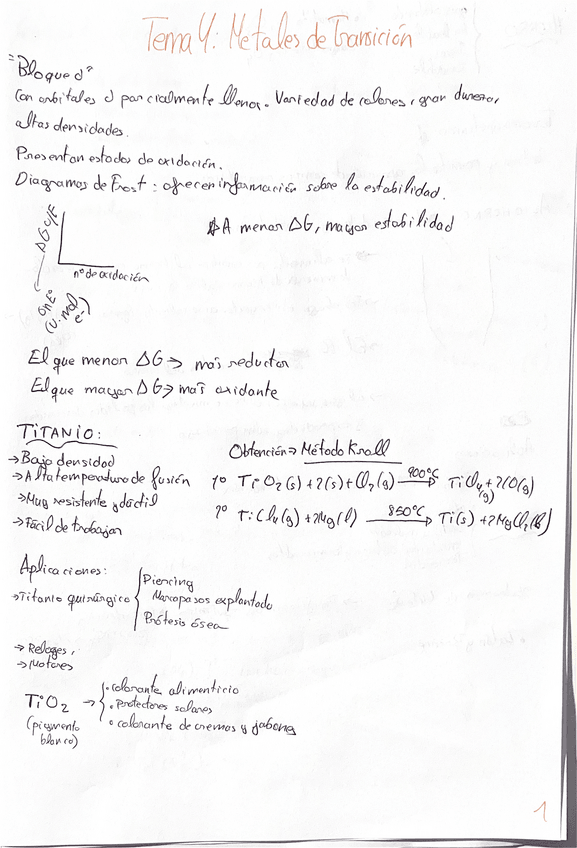 Tema 4: Metales de Transición
"Bloque d"
Con orbitales d parcialmente llenos. Variedad de colores, gran dureza,
altas densidades.
Presentan estados de oxidación.
Diagramas de Frost: ofrecen información sobre la estabilidad.
A menor ΔG, mayor estabilidad
ΔGº/F
nº de oxidación
ó nEº
(V. mol e⁻)
El que menor ΔG → más reductor
El que mayor ΔG → más oxidante
TiTANIO:
→ Baja densidad
→ Alta temperatura de fusión
→ Muy resistente y dúctil
→ Fácil de trabajar
Obtención → Método Kroll
1º TiO2(s) + 2(s) + Cl2(g) 900ºC → TiCl4(g) + 2CO(g)
2º TiCl4(g) + 2Mg(l) 850ºC → Ti(s) + 2MgCl2(l)
Aplicaciones:
→ Titanio quirúrgico
Piercing
Marcapasos explantado
Prótesis ósea
→ Relojes,
→ Motores
TiO2 →
(pigmento
blanco)
• colorante alimenticio
• Protectores solares
• colorante de cremas y jabones
1